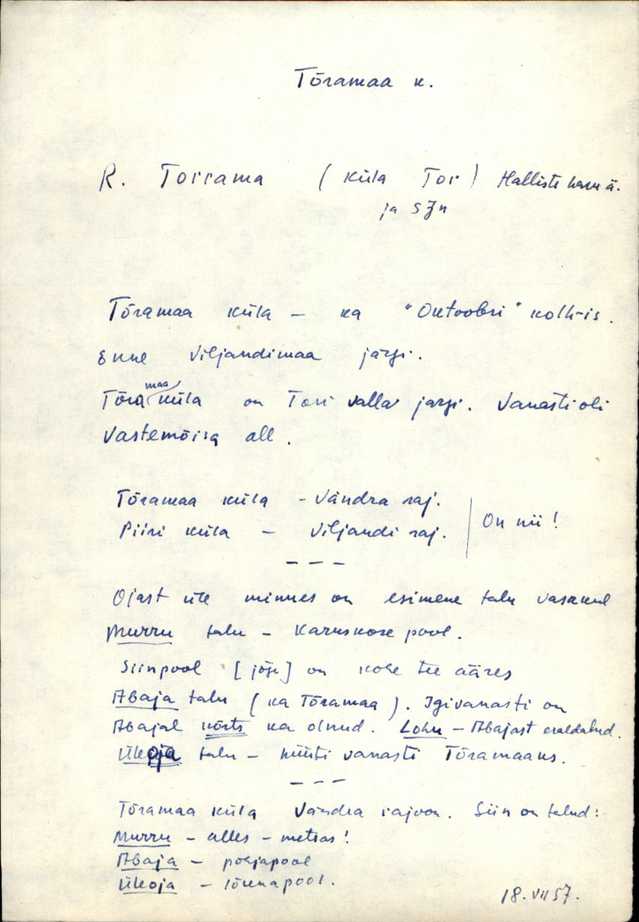 Tõramaa k.
R. Torrama (küla Tor) Halliste
ja SJn
Tõramaa küla – ka "Oktoobri" kolh-is.
Enne Viljandimaa järgi.
Tõramaa küla on Tori valla järgi. Vanasti oli
Vastemõisa all.
Tõramaa küla - Vändra raj.
Piiri küla – Viljandi raj.
On nii!
– – –
Ojast üle minnes on esimene talu vasakul
Murru talu – Karuskose pool.
Siinpool [jõge] on kohe tee ääres
Abaja talu (ka Tõramaa). Igivanasti on
Abajal kõrts ka olnud. Lohu – Abajast eraldatud.
Ülioja talu – hüüti vanasti Tõramaaks.
– – –
Tõramaa küla Vändra rajoon. Siin on talud:
Murru – alles – metsas!
Abaja – põhjapool
Ülioja – lõunapool.
18.VII 57.